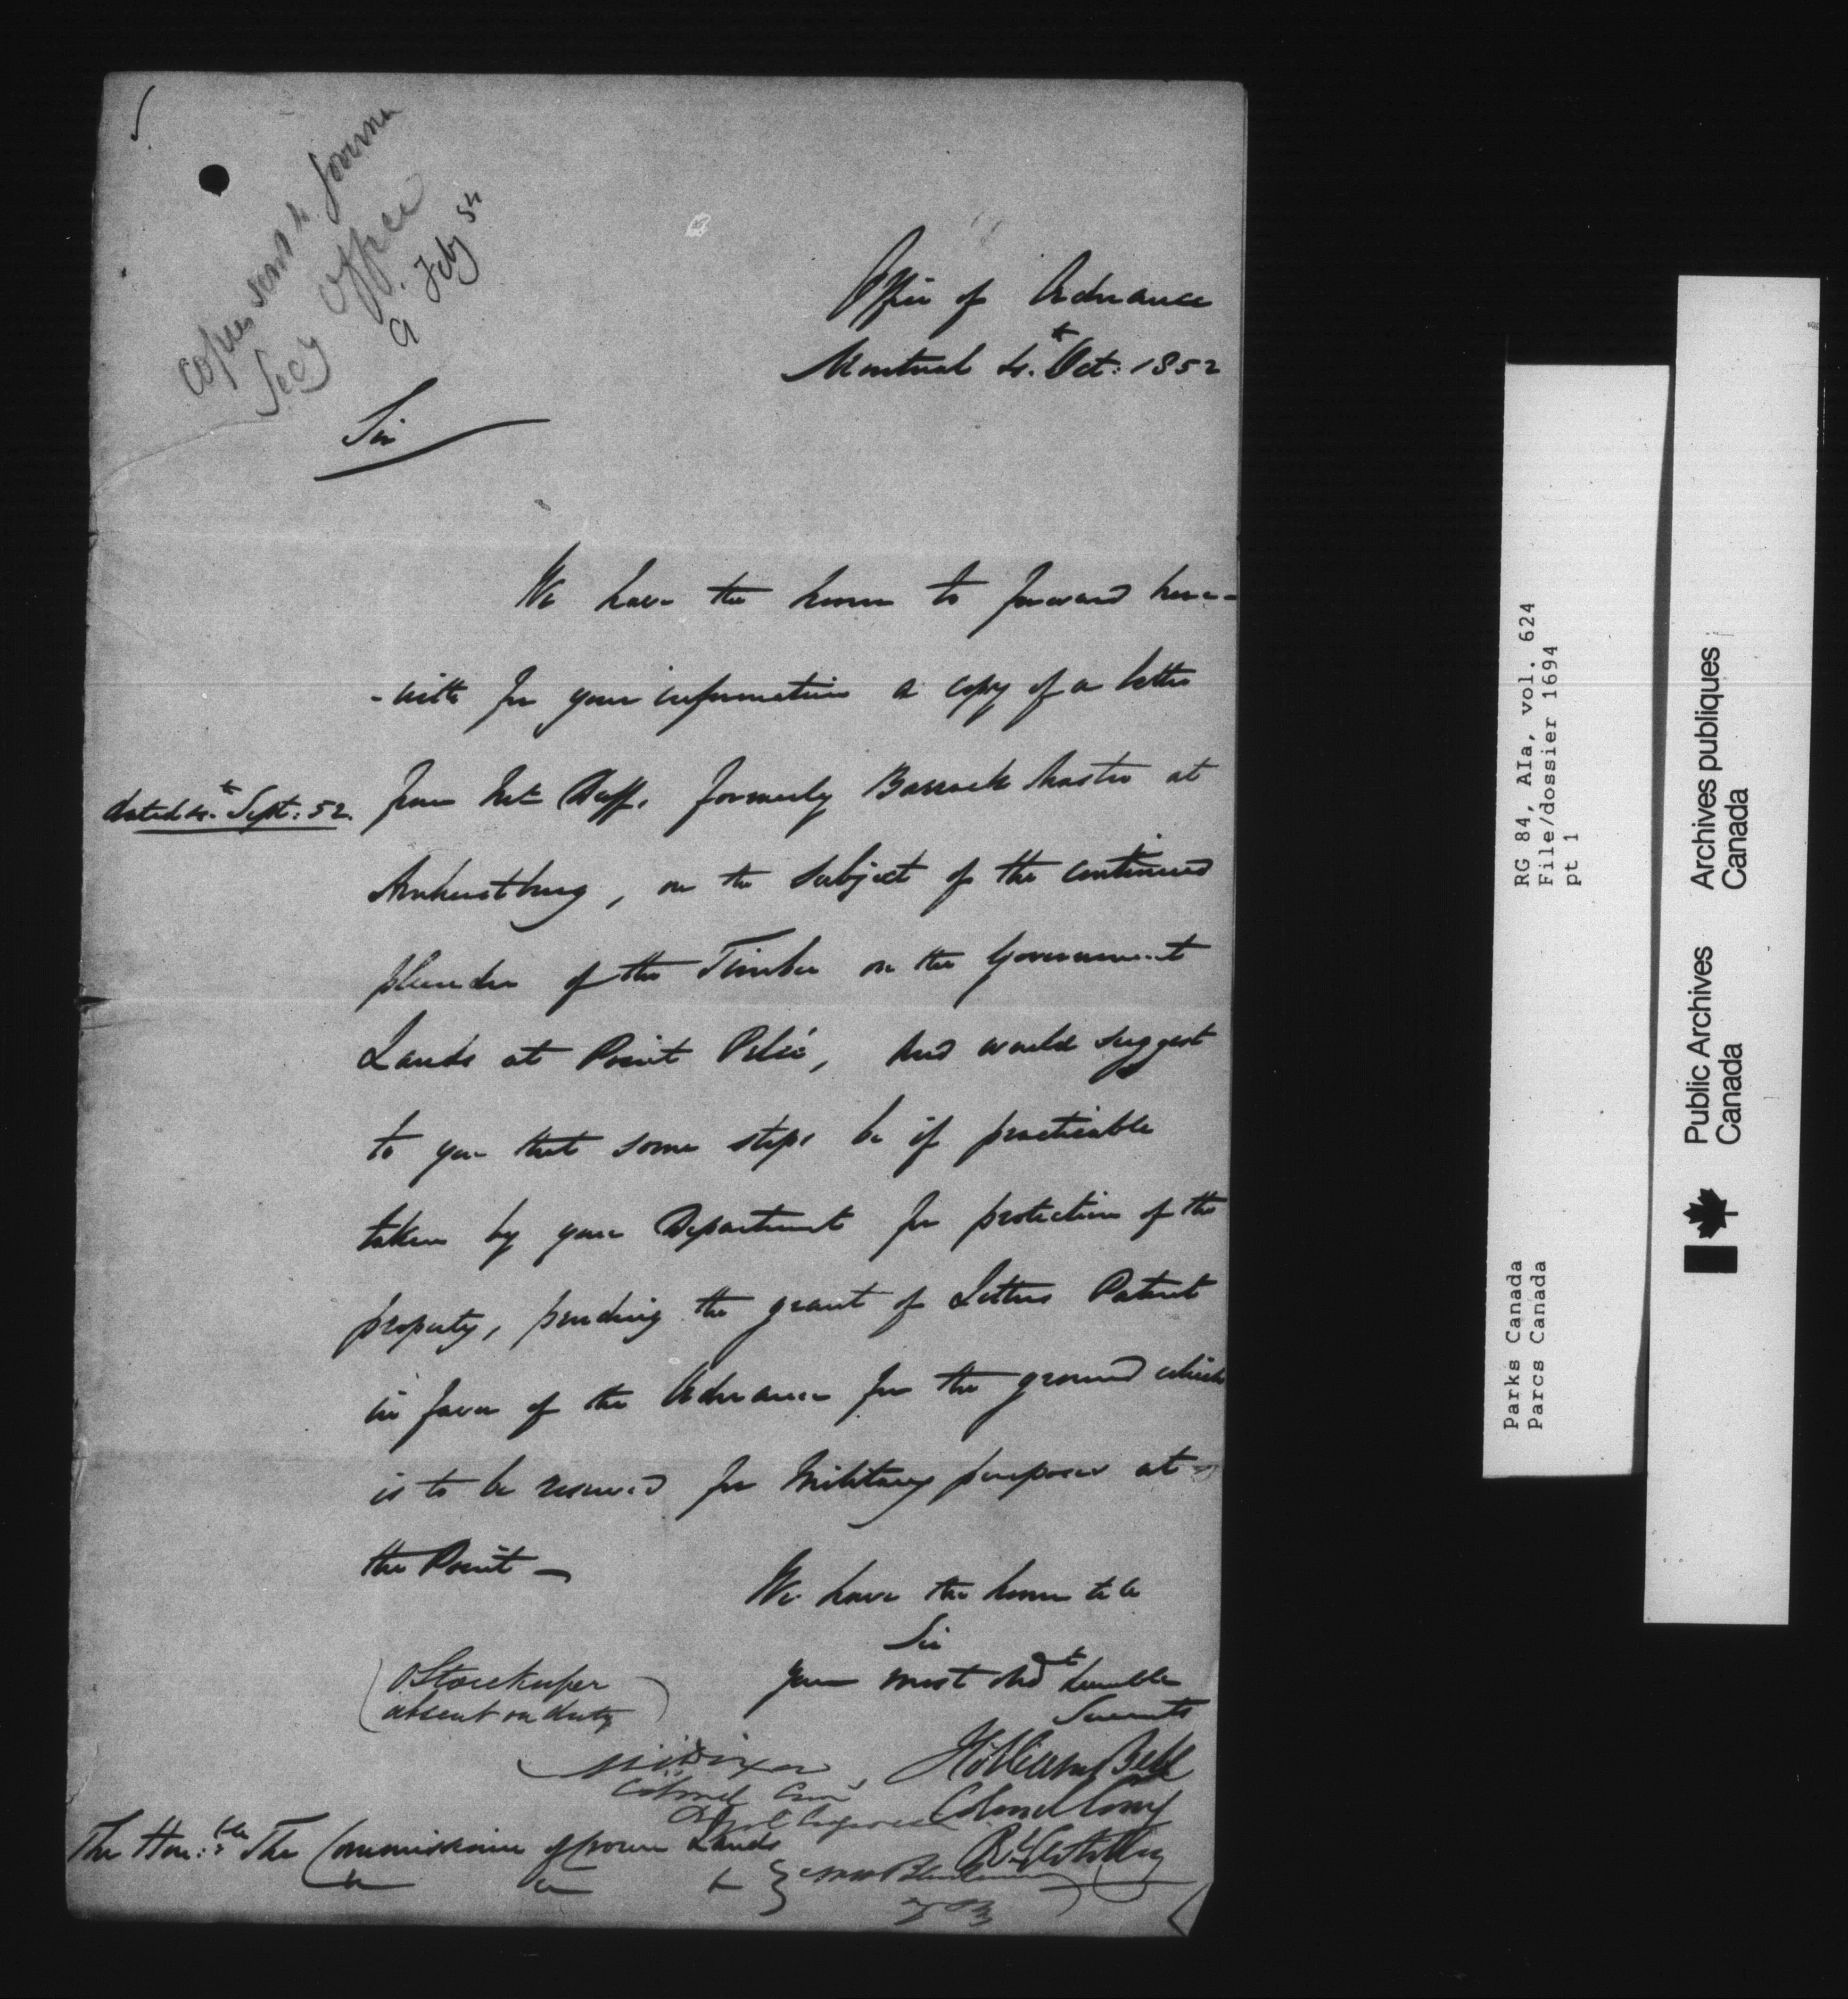 copies sent to Governor
Secy Office
9 Feby 54
Office of Ordnance
Montreal 4th Oct: 1852
Sir
We have the honor to forward here-
-with for your information a copy of a letter
dated 4th Sept: 52.
from Mr Duff, formerly Barrack Master at
Amherstburg, on the subject of the continued
plunder of the Timber on the Government
Lands at Point Pelée, and would suggest
to you that some steps be if practicable
taken by your Department for protection of the
property, pending the grant of Letters Patent
in favor of the Ordnance for the ground which
is to be reserved for Military purposes at
the Point —
We have the honor to be
Sir
Your most Obdt humble
Servants
(OStorekeeper
absent on duty)
Colonel Com
Royal Engineers
William Bell
Colonel Comg
Rl Artillery
The Honble The Commissioner of Crown Lands
RG 84, A1a, vol. 624
File/dossier 1694
pt 1
Parks Canada
Parcs Canada
Public Archives Canada
Archives publiques Canada